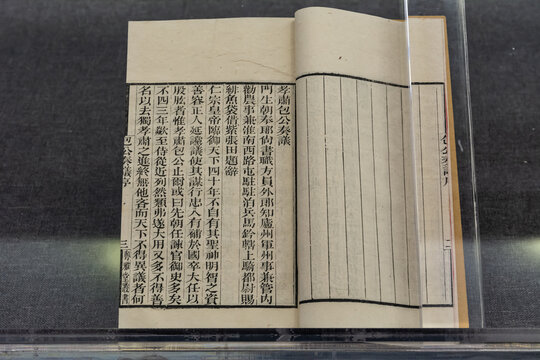 孝肅包公奏議
門生朝奉郎尚書職方員外郎知廬州軍州事兼管內
勸農事兼淮南西路屯駐駐泊兵馬鈐轄上騎都尉賜
緋魚袋借紫張田題辭
仁宗皇帝臨御天下四十年不自有其聖神明智之資
善容正人延讜議使其謀行忠入有補於國卒大任以
股肱者惟孝肅包公止爾或曰先朝任諫官御史多矣
不四三年歘至侍從近列然類弗遂大用又多不得善
名以去獨孝肅之進終無他吝而天下不得異議者何
包公奏議序 三 粵雅堂叢書